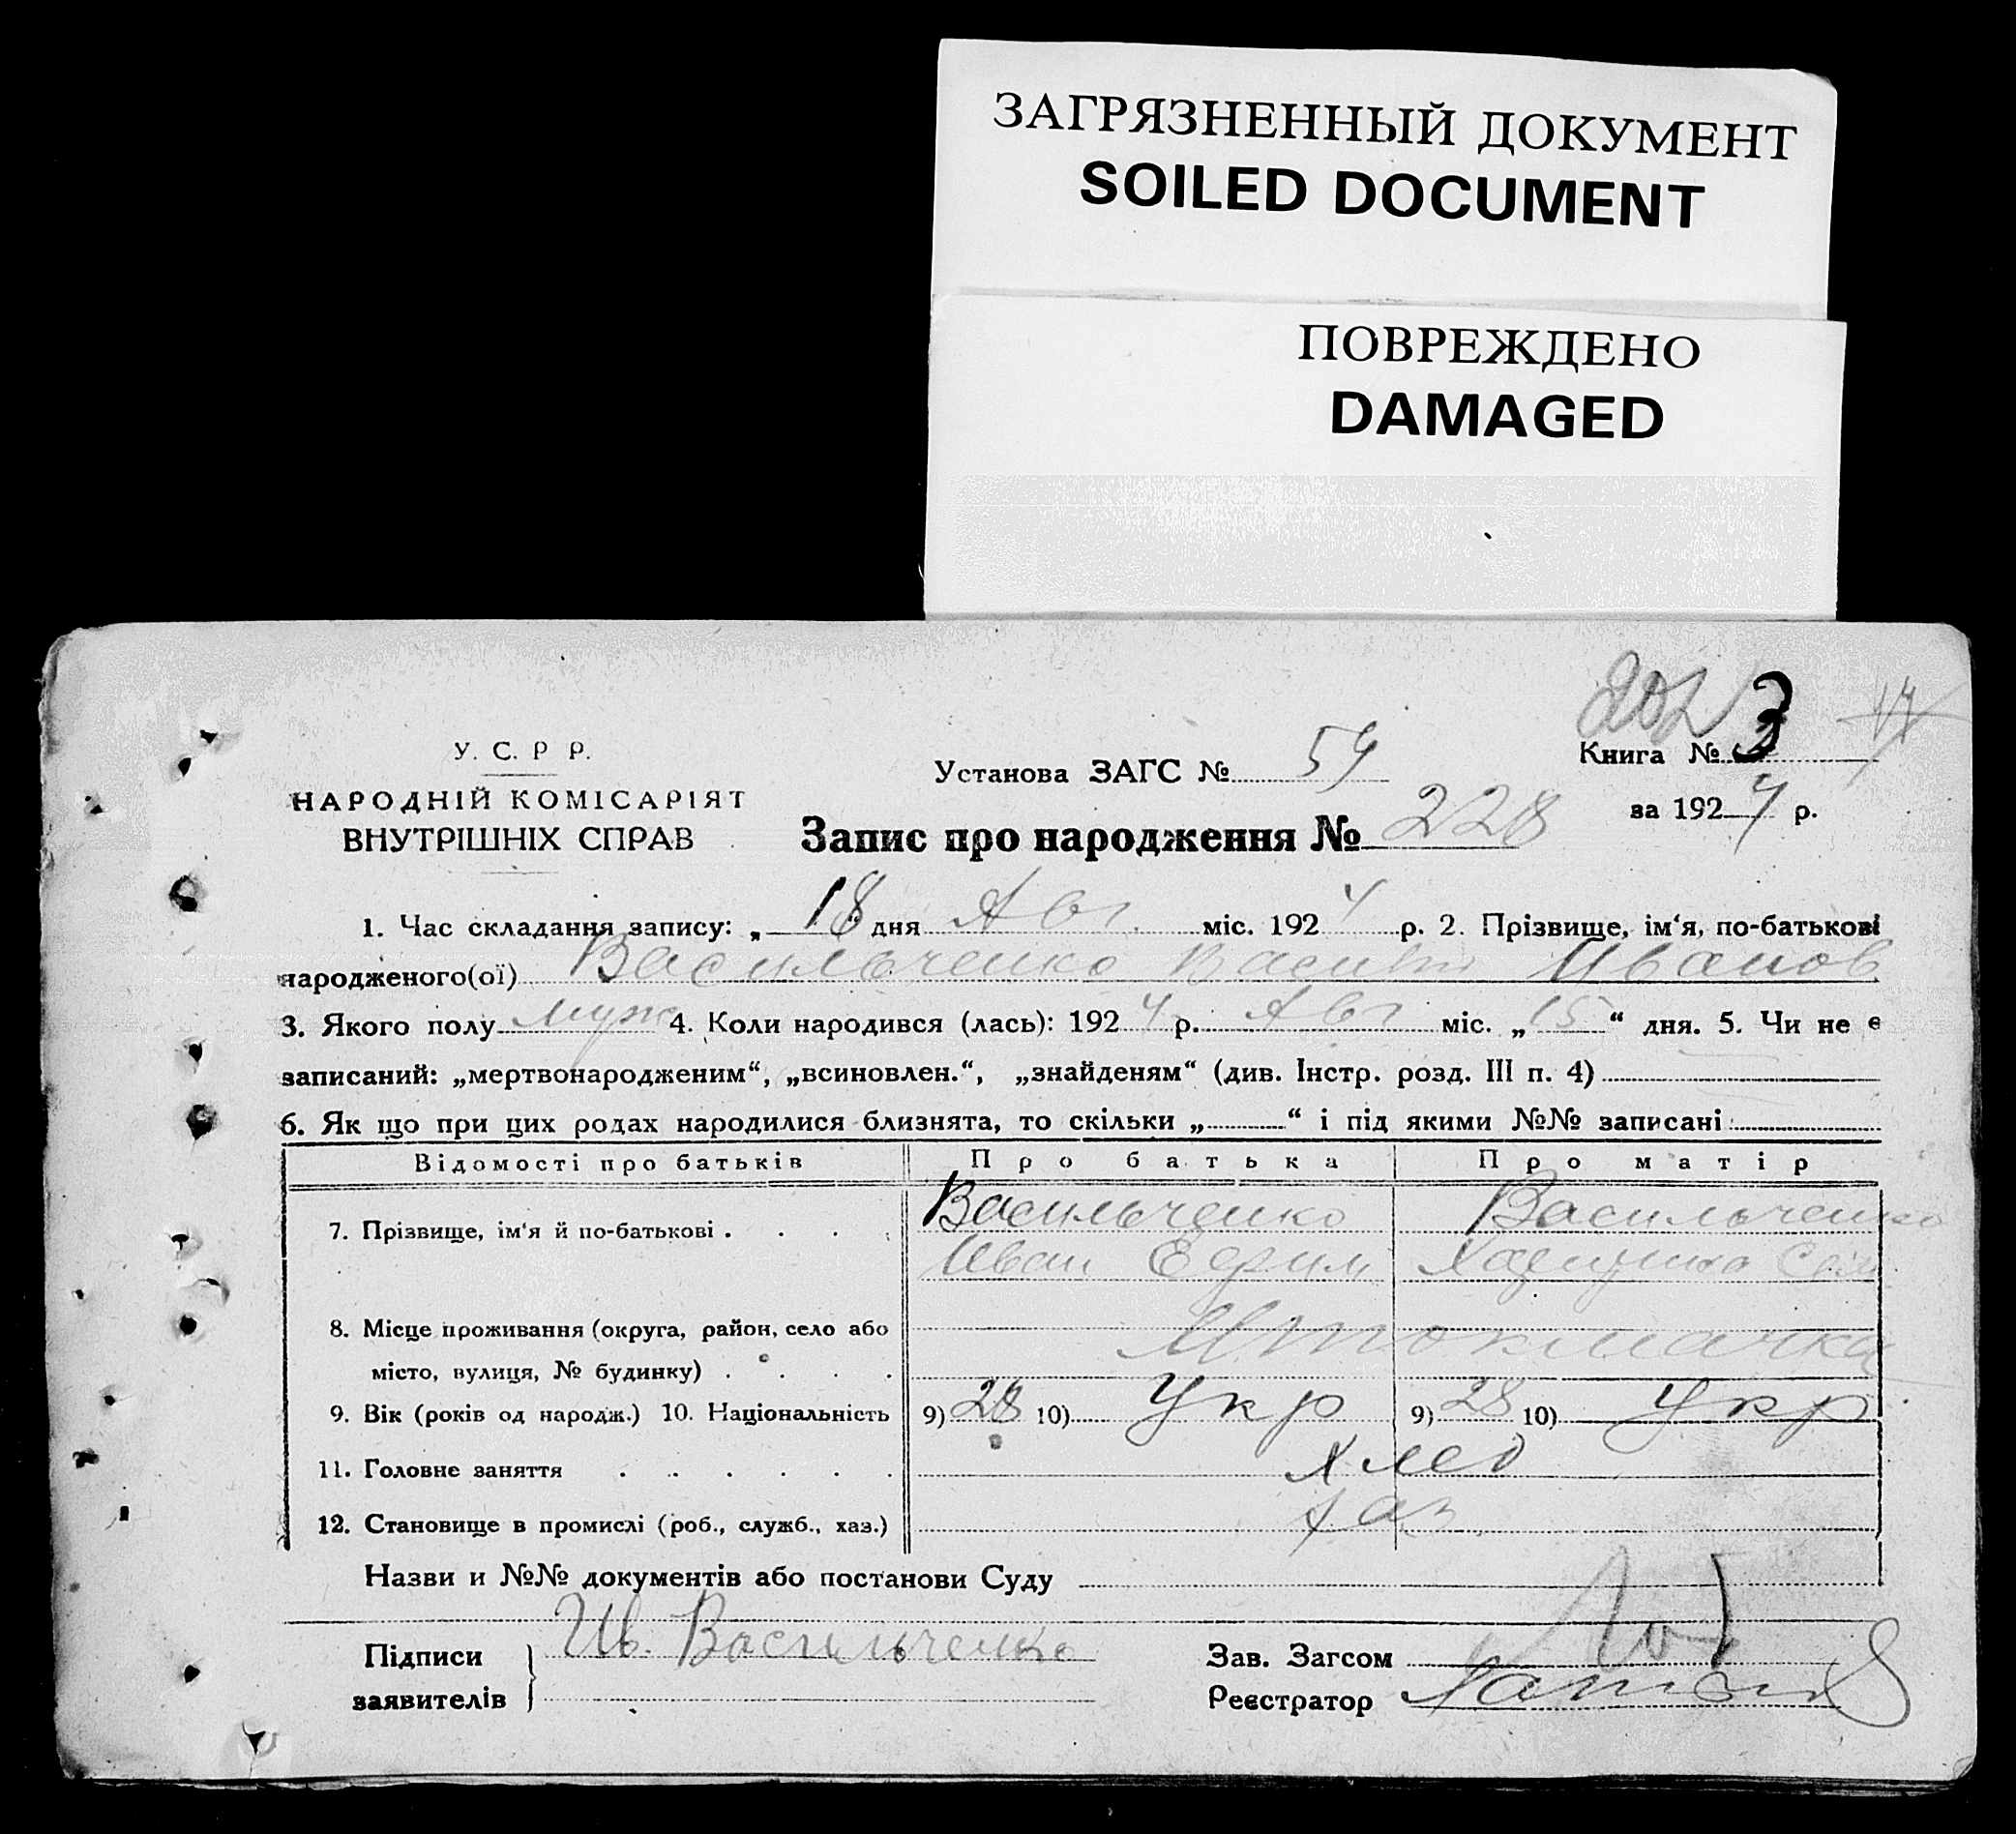 ЗАГРЯЗНЕННЫЙ ДОКУМЕНТ
SOILED DOCUMENT
ПОВРЕЖДЕНО
DAMAGED
202 3 17
У. С. Р Р.
Установа ЗАГС № 59
Книга № 3
НАРОДНІЙ КОМІСАРІЯТ
ВНУТРІШНІХ СПРАВ
за 1924 р.
Запис про народження № 228
1. Час складання запису: „18 дня Авг. міс. 1924 р. 2. Прізвище, ім‘я, по-батькові
народженого(ої) Васильченко Василь Иванов
3. Якого полу муж 4. Коли народився (лась): 1924 р. Авг міс. „15“ дня. 5. Чи не є
записаний: „мертвонародженим“, „всиновлен.“, „знайденям“ (див. Інстр. розд. III п. 4)
6. Як що при цих родах народилися близнята, то скільки „ “ і під якими №№ записані
Відомості про батьків Про батька Про матір
7. Прізвище, ім‘я й по-батькові . . . . Васильченко Васильченко
Иван Ефим
8. Місце проживання (округа, район, село або
місто, вулиця, № будинку) . . . . М. Токмачка
9. Вік (років од народж.) 10. Національність 9) 28 10) Укр 9) 28 10) Укр
11. Головне заняття . . . . . . Хлеб
12. Становище в промислі (роб., служб., хаз.) Хаз
Назви и №№ документів або постанови Суду
Підписи Ив. Васильченко Зав. Загсом
заявителів Реєстратор